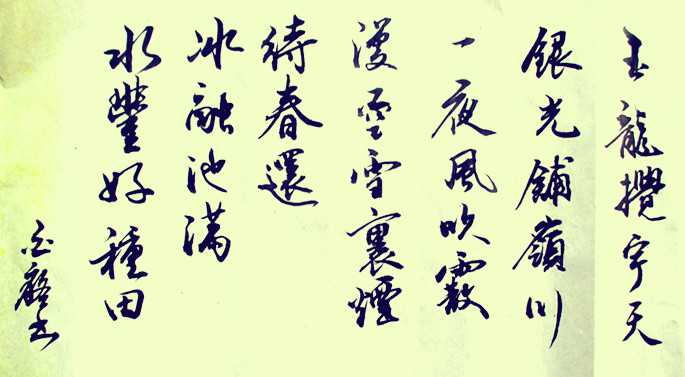 玉龍攪宇天
銀光鋪嶺川
一夜風吹霰
漫空雪裏煙
待春還
冰融池滿
水豐好種田